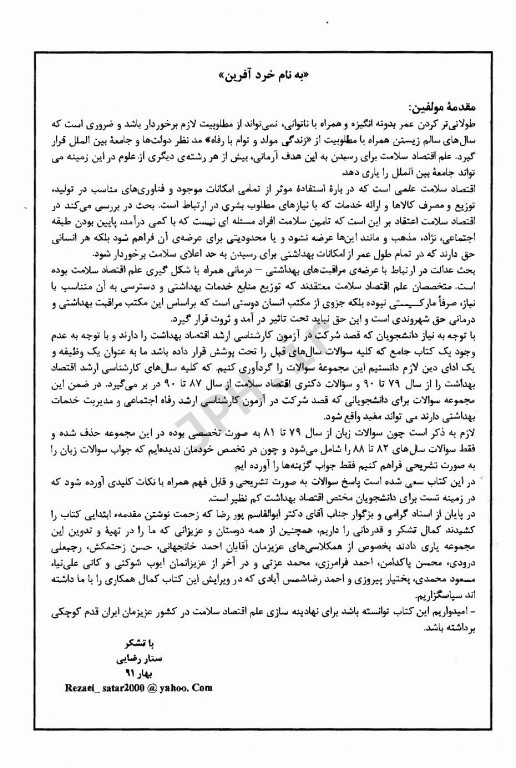 «به نام خرد آفرین»
مقدمهٔ مولفین:
طولانی‌تر کردن عمر بدونه انگیزه و همراه با ناتوانی، نمی‌تواند از مطلوبیت لازم برخوردار باشد و ضروری است که
سال‌های سالم زیستن همراه با مطلوبیت از «زندگی مولد و توام با رفاه» مد نظر دولت‌ها و جامعهٔ بین الملل قرار
گیرد. علم اقتصاد سلامت برای رسیدن به این هدف آرمانی، بیش از هر رشته‌ی دیگری از علوم در این زمینه می
تواند جامعهٔ بین الملل را یاری دهد.
اقتصاد سلامت علمی است که در بارهٔ استفادهٔ موثر از تمامی امکانات موجود و فناوری‌های مناسب در تولید،
توزیع و مصرف کالاها و ارائه خدمات که با نیازهای مطلوب بشری در ارتباط است. بحث در بررسی می‌کند در
اقتصاد سلامت اعتقاد بر این است که تامین سلامت افراد مسئله ای نیست که با کمی درآمد، پایین بودن طبقه
اجتماعی، نژاد، مذهب و مانند این‌ها عرضه نشود و یا محدودیتی برای عرضه‌ی آن فراهم شود بلکه هر انسانی
حق دارند که در تمام طول عمر از امکانات بهداشتی برای رسیدن به حد اعلای سلامت برخوردار شود.
بحث عدالت در ارتباط با عرضه‌ی مراقبت‌های بهداشتی – درمانی همراه با شکل گیری علم اقتصاد سلامت بوده
است. متخصصان علم اقتصاد سلامت معتقدند که توزیع منابع خدمات بهداشتی و دسترسی به آن متناسب با
نیاز، صرفاً مارکسیستی نبوده بلکه جزوی از مکتب انسان دوستی است که براساس این مکتب مراقبت بهداشتی و
درمانی حق شهروندی است و این حق نباید تحت تاثیر در آمد و ثروت قرار گیرد.
با توجه به نیاز دانشجویان که قصد شرکت در آزمون کارشناسی ارشد اقتصاد بهداشت را دارند و با توجه به عدم
وجود یک کتاب جامع که کلیه سوالات سال‌های قبل را تحت پوشش قرار داده باشد ما به عنوان یک وظیفه و
یک ادای دین لازم دانستیم این مجموعهٔ سوالات را گردآوری کنیم. که کلیه سال‌های کارشناسی ارشد اقتصاد
بهداشت را از سال ۷۹ تا ۹۰ و سؤالات دکتری اقتصاد سلامت از سال ۸۷ تا ۹۰ در بر می‌گیرد. در ضمن این
مجموعه سوالات برای دانشجویانی که قصد شرکت در آزمون کارشناسی ارشد رفاه اجتماعی و مدیریت خدمات
بهداشتی دارند می تواند مفید واقع شود.
لازم به ذکر است چون سوالات زبان از سال ۷۹ تا ۸۱ به صورت تخصصی بوده در این مجموعه حذف شده و
فقط سوالات سال‌های ۸۲ تا ۸۸ را شامل می‌شود و چون در تخصص خودمان ندیده‌ایم که جواب سوالات زبان را
به صورت تشریحی فراهم کنیم فقط جواب گزینه‌ها را آورده ایم.
در این کتاب سعی شده است پاسخ سوالات به صورت تشریحی و قابل فهم همراه با نکات کلیدی آورده شود که
در زمینه تست برای دانشجویان مختص اقتصاد بهداشت کم نظیر است.
در پایان از استاد گرامی و بزگوار جناب آقای دکتر ابوالقاسم پور رضا که زحمت نوشتن مقدمه، ابتدایی کتاب را
کشیدند کمال تشکر و قدردانی را داریم، همچنین از همه دوستان و عزیزانی که ما را در تهیهٔ و تدوین این
مجموعه یاری دادند بخصوص از همکلاسی‌های عزیزمان آقایان احمد خانجهانی، حسن زحمتکش، رجبعلی
درودی، محسن پاکدامن، احمد فرامرزی، محمد عزتی و در آخر از عزیزانمان ایوب شوکتی و کانی علی‌نیا،
مسعود محمدی، بختیار پیروزی و احمد رضاشمس آبادی که در ویرایش این کتاب کمال همکاری را با ما داشته
اند سپاسگزاریم.
- امیدواریم این کتاب توانسته باشد برای نهادینه سازی علم اقتصاد سلامت در کشور عزیزمان ایران قدم کوچکی
برداشته باشد.
با تشکر
ستار رضایی
بهار ۹۱
Rezaei_ satar2000 @ yahoo. Com